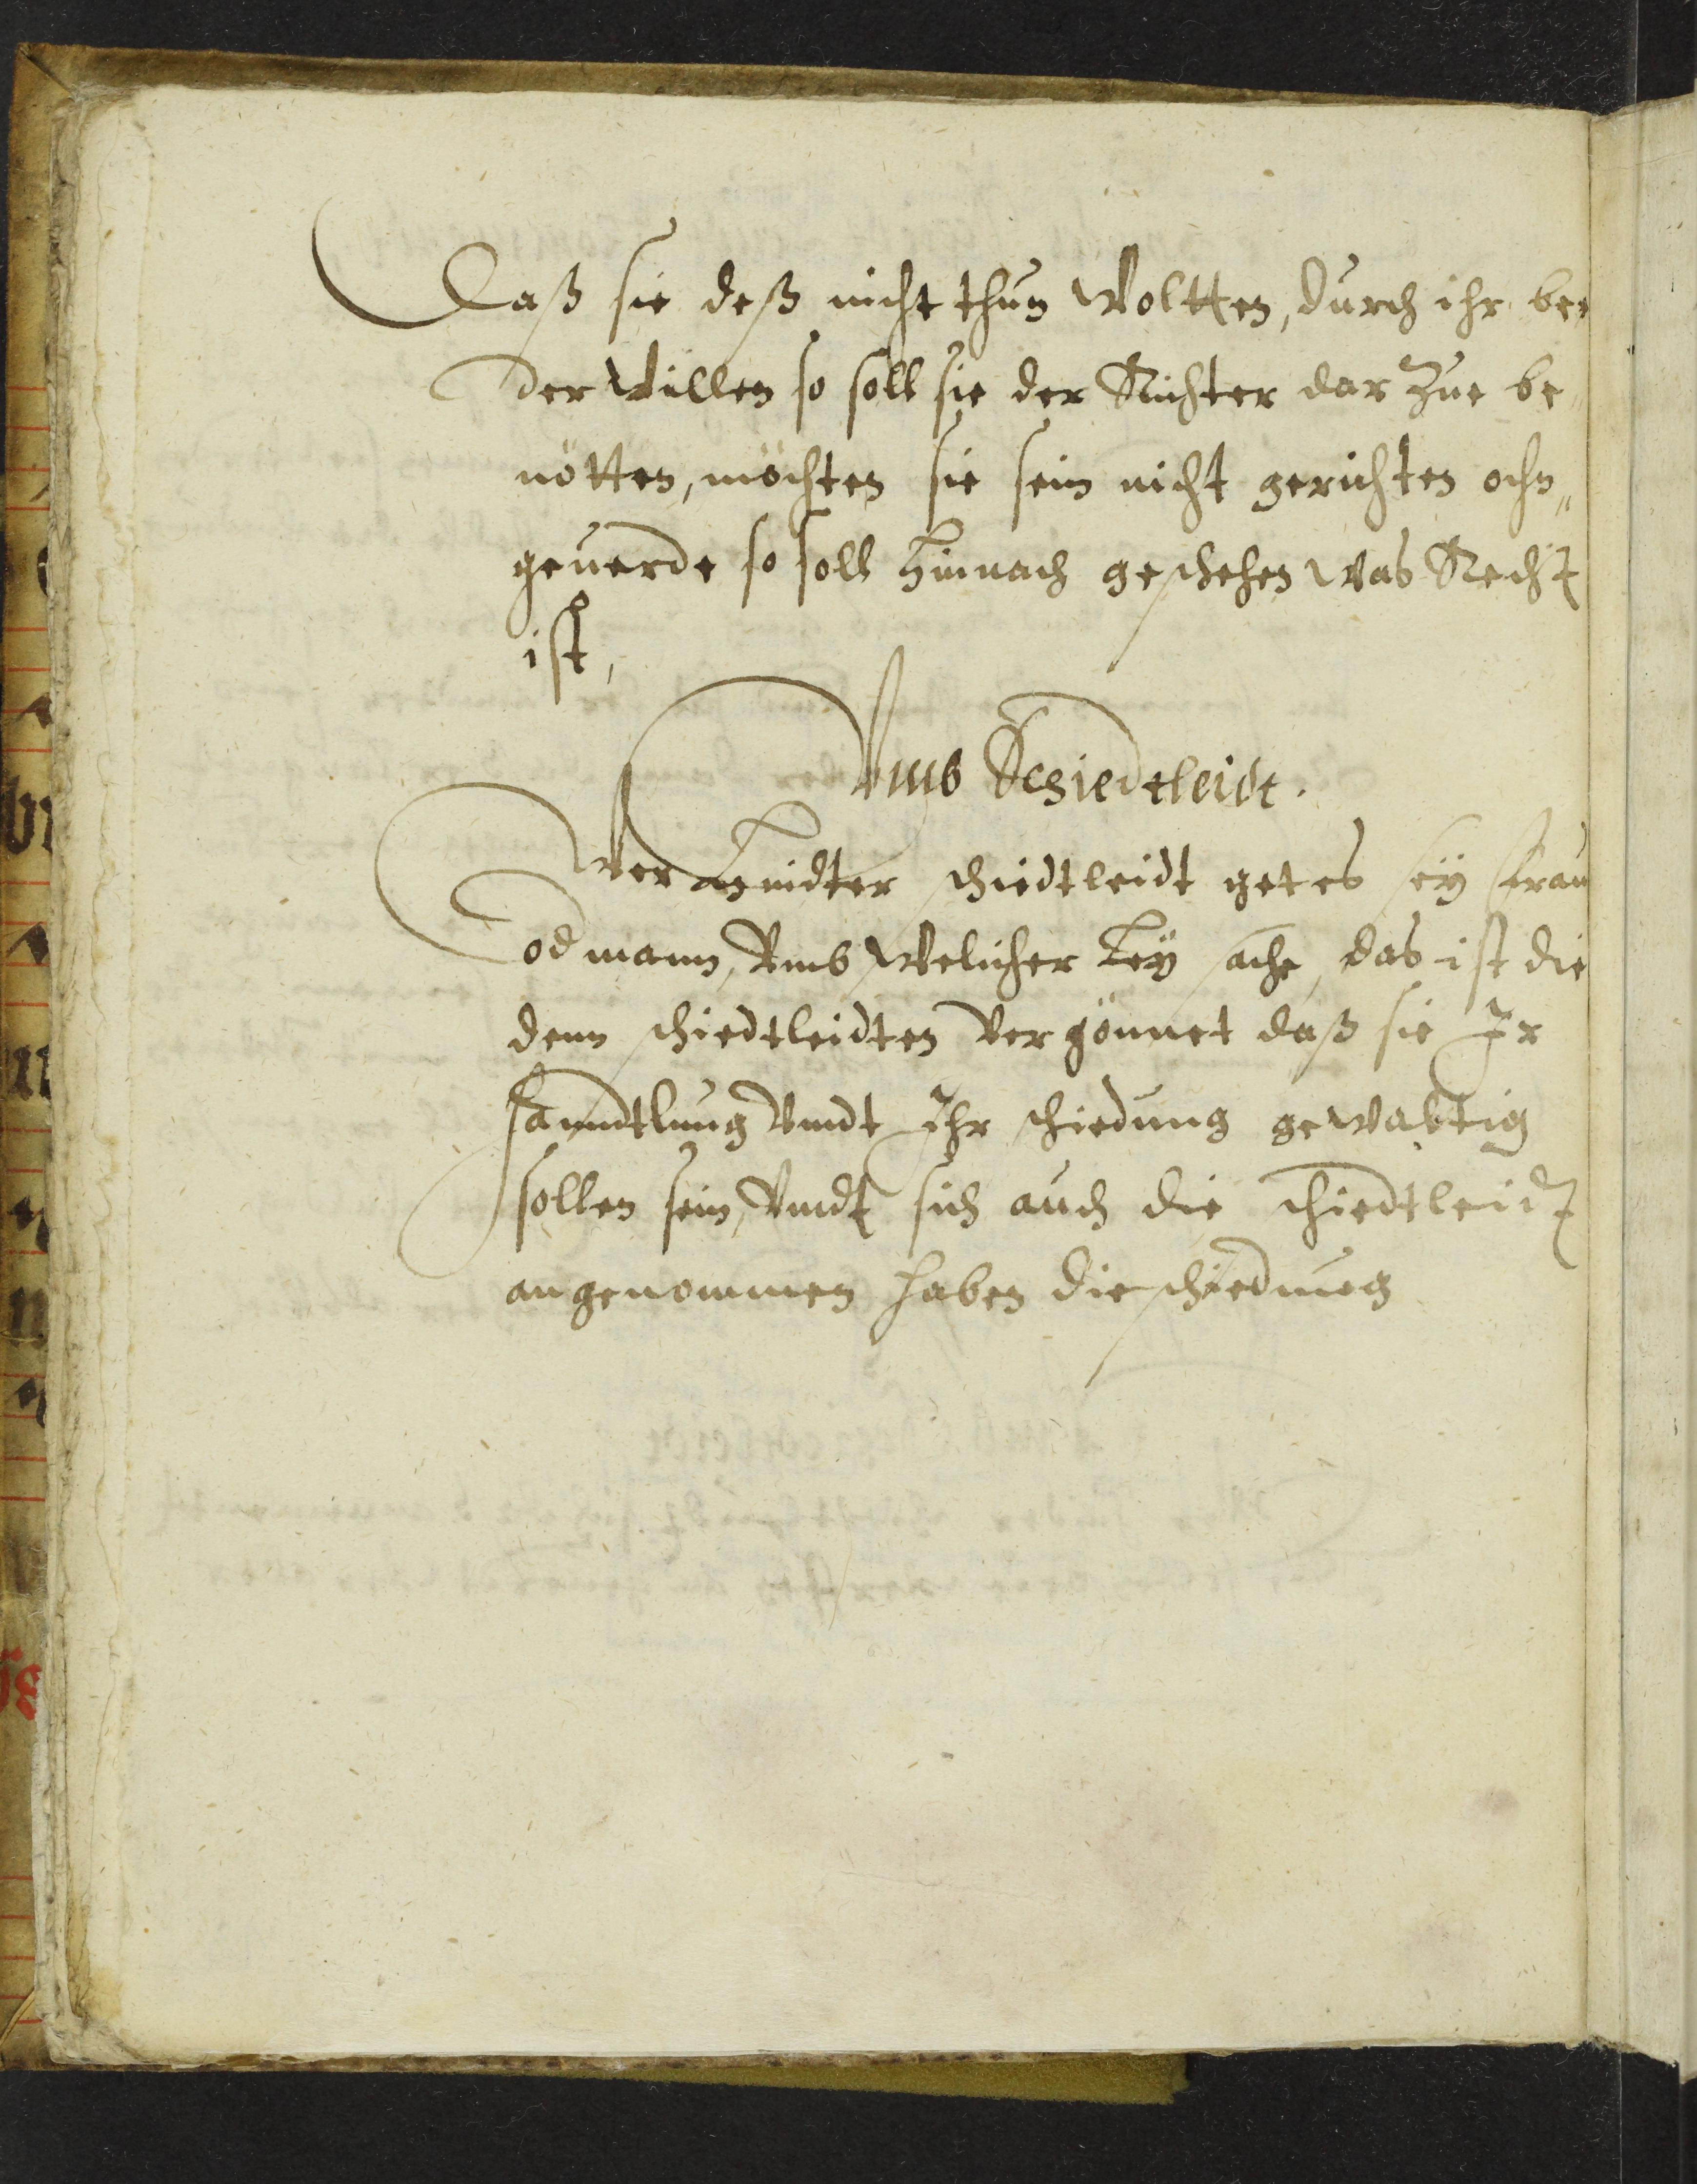 Daß sie deß nicht thun Woltten, durch ihr be„
der Willen so soll sie der Richter dar Zue be„
nötten, möchten sie sein nicht gerichten ohn„
geuerde so soll hinnach geschehen Was Recht
ist,
Vmb Schiedtleidt.
Wer hindter schiedtleidt get es sey frau
od mann, Vmb Welicher Ley sache, das ist die
denn schiedtleidten Vergönnet daß sie Ir
hanndtlung Vnndt Ihr schiedung gewaltig
sollen sein, Vnndt sich auch die schiedtleidt
angenommen haben die schiedung